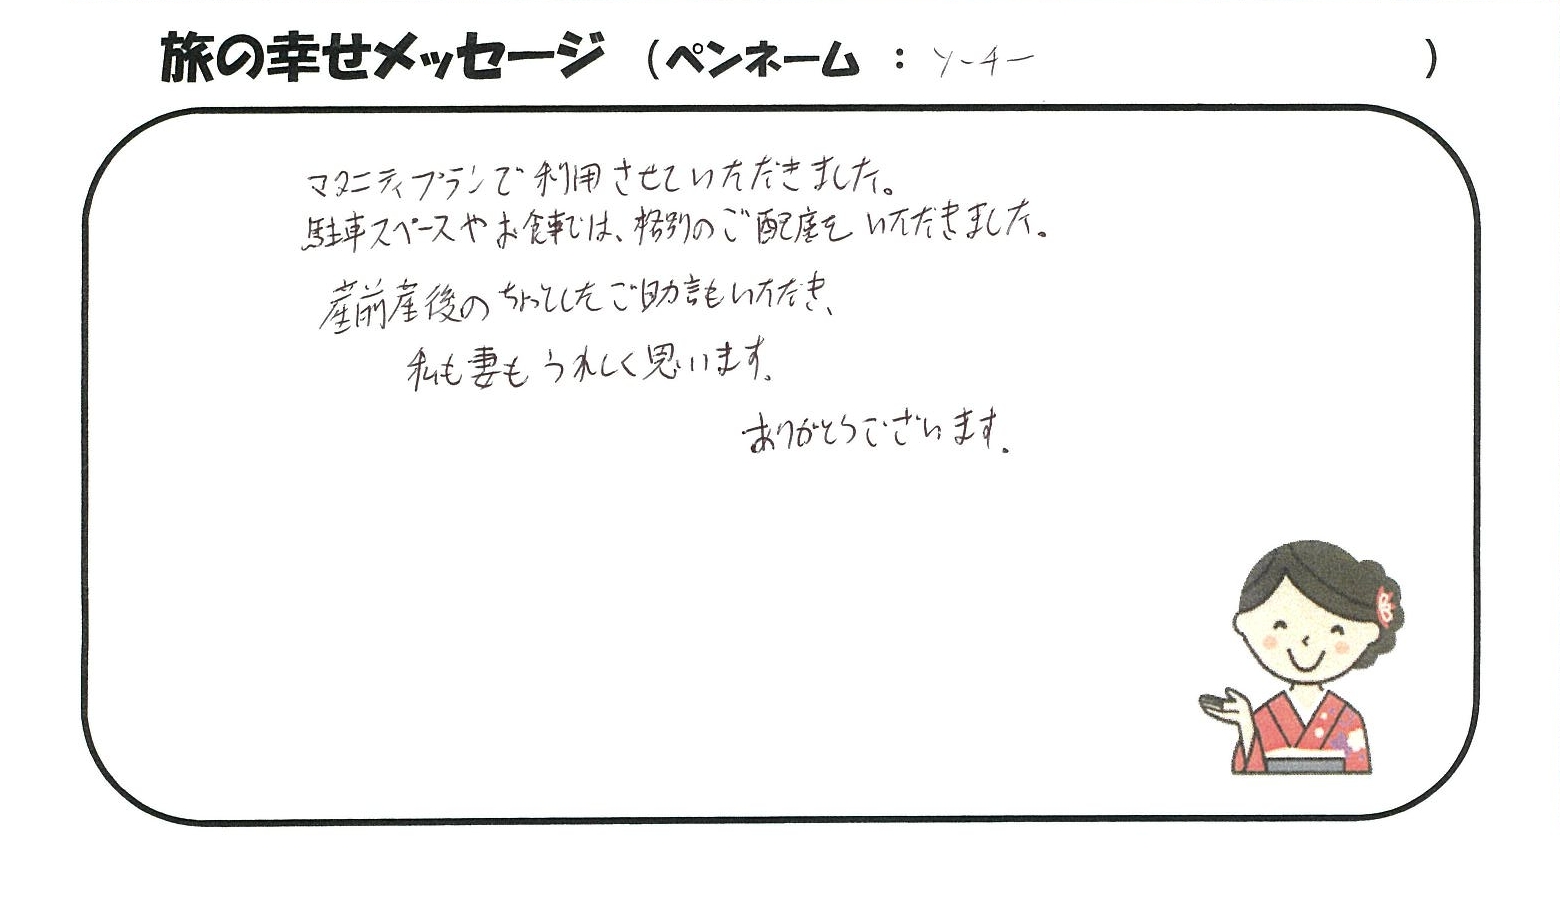 旅の幸せメッセージ (ペンネーム : ソーチー )
マタニティプランで利用させていただきました。
駐車スペースやお食事では、格別のご配慮をいただきました。
産前産後のちょっとしたご助言もいただき、
私も妻もうれしく思います。
ありがとうございます。